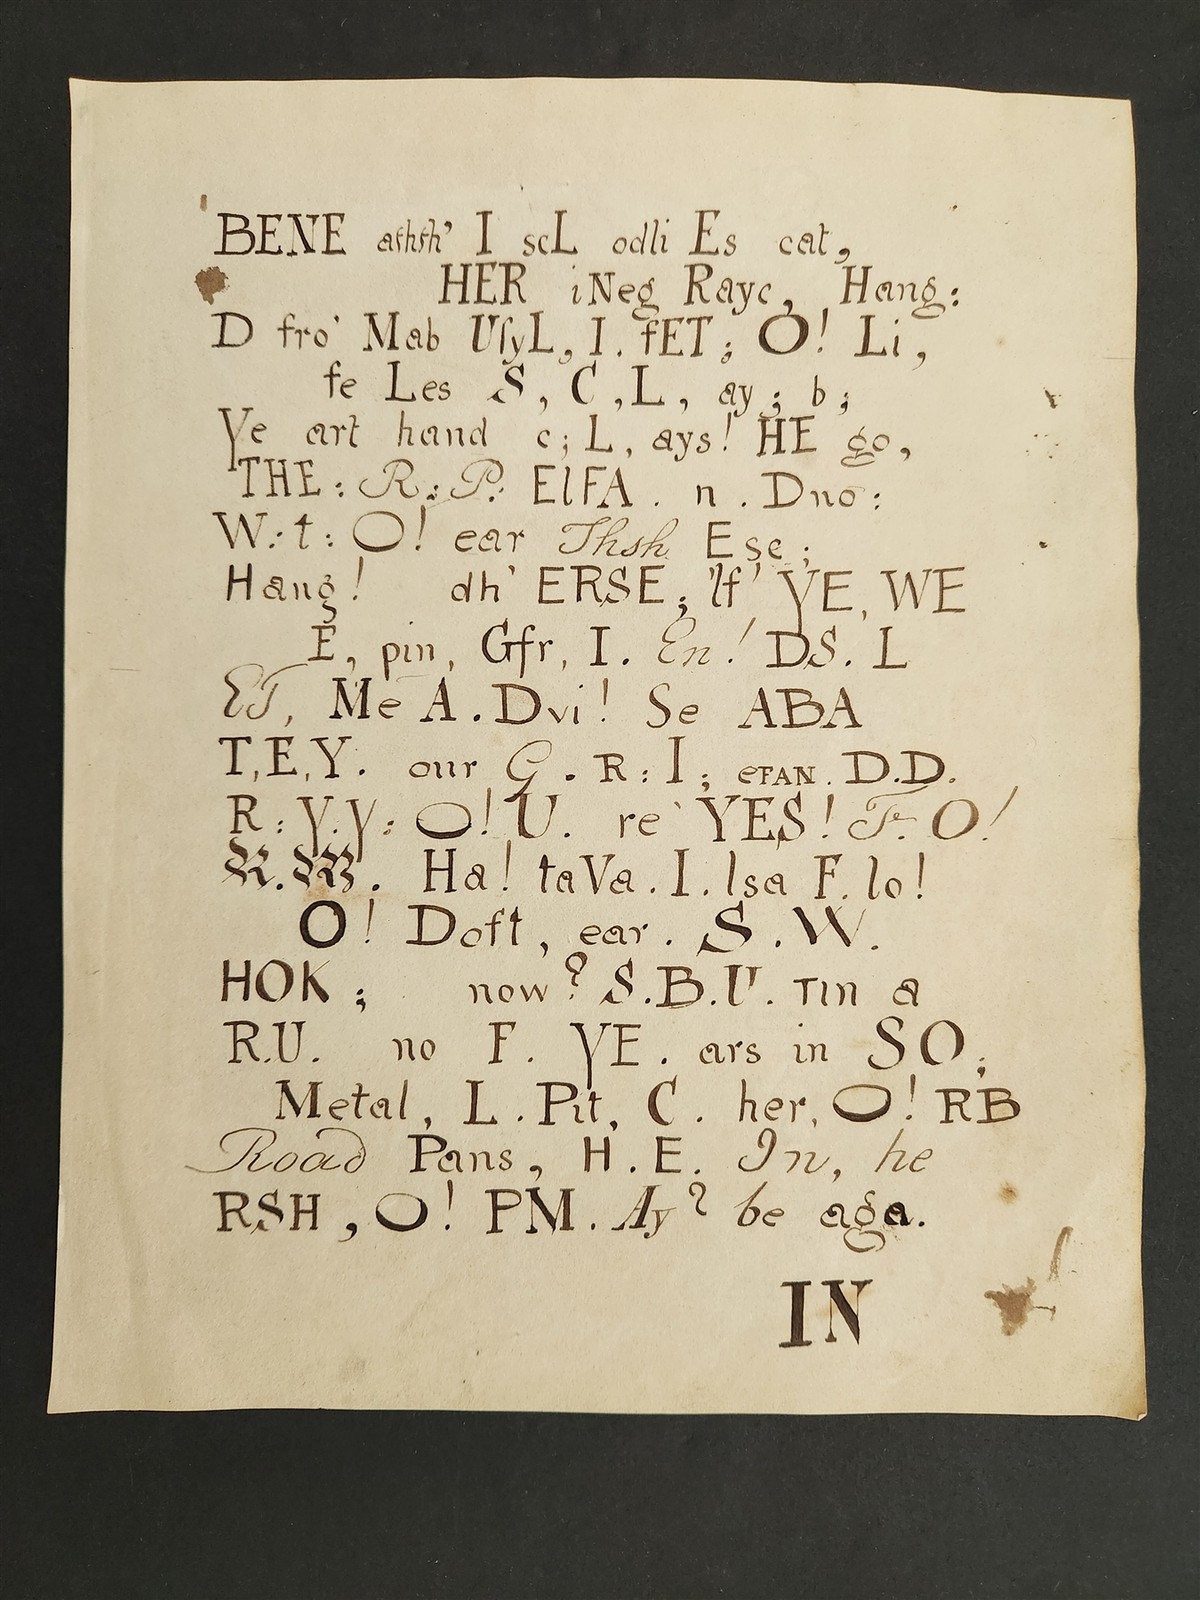 BENE athth' I scL odli Es cat,
HER iNeg Rayc, Hang:
D fro' Mab UſyL, I. fET; O! Li,
fe Les S, C, L, ay; b;
Ye art hand c; L, ays! HE go,
THE: R: P: ElFA. n. Dno:
W: t: O! ear Thsh Ese;
Hang! dh' ERSE; 'lf' YE, WE
E, pin, Gfr, I. En! DS. L
ET, Me A. Dvi! Se ABA
T,E,Y. our G. R: I; eTAN. D.D.
R: Y.Y: O! U. re' YES! F. O!
R.W. Ha! taVa. I. lsa F. lo!
O! Doft, ear. S. W.
HOK; now? S.B.U. TIn a
R.U. no F. YE. ars in SO;
Metal, L. Pit, C. her, O! RB
Road Pans, H. E. In, he
RSH, O! PM. Ay? be aga.
IN